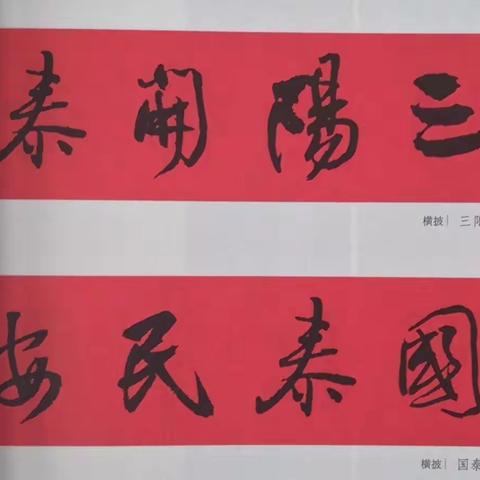 三陽開泰
横披| 三
國泰民安
横披| 国泰